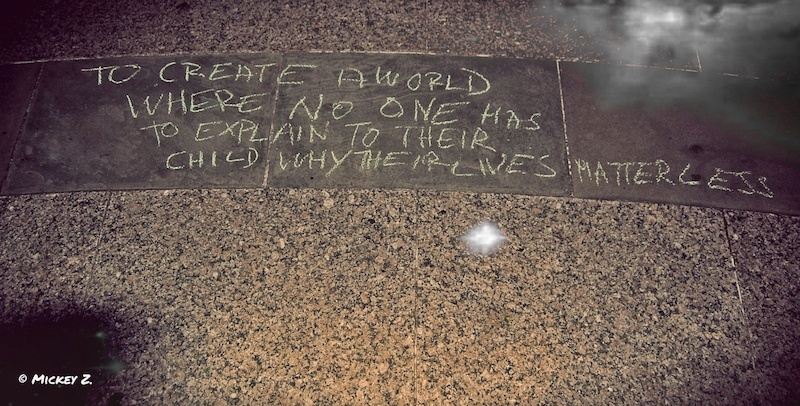 TO CREATE A WORLD
WHERE NO ONE HAS
TO EXPLAIN TO THEIR
CHILD WHY THEIR LIVES MATTER LESS
© MICKEY Z.